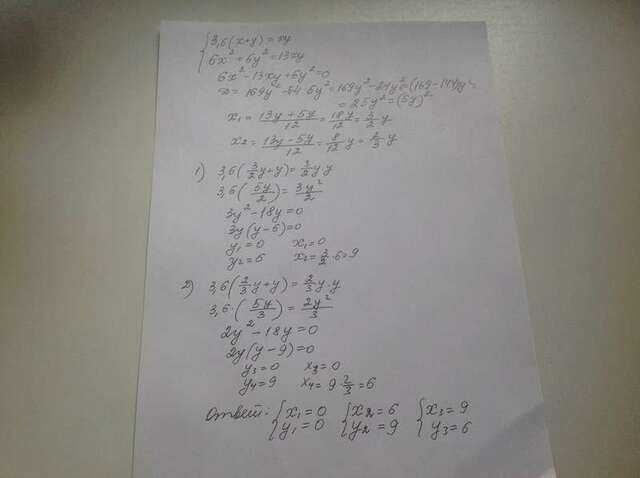 {3,6(x+y)=xy
6x²+6y²=13xy
6x²-13xy+6y²=0
D=169y²-24·6y²=169y²-24y²·6=(169-144)y²=
=25y²=(5y)²
x₁=(13y+5y)/12=18y/12=3/2 y
x₂=(13y-5y)/12=8/12 y=2/3 y
1) 3,6(3/2 y+y)=3/2 y·y
3,6(5y/2)=3y²/2
3y²-18y=0
3y(y-6)=0
y₁=0 x₁=0
y₂=6 x₂=3/2·6=9
2) 3,6(2/3 y+y)=2/3 y·y
3,6·(5y/3)=2y²/3
2y²-18y=0
2y(y-9)=0
y₃=0 x₃=0
y₄=9 x₄=9·2/3=6
Ответ: {x₁=0 {x₂=6 {x₃=9
y₁=0 y₂=9 y₃=6